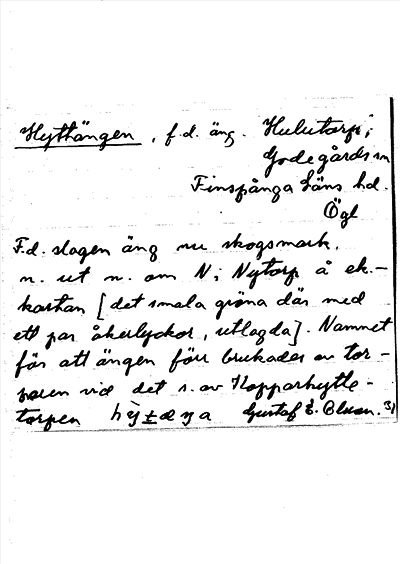 Hythängen, f.d. äng. Hulutorp,
Godegårds sn
Finspånga Läns hd.
Ögl
F.d. slagen äng nu skogsmark.
n. ut n. om N i Nytorp å ek.-
kartan [det smala gröna där med
ett par åkerlyckor, utlagda]. Namnet
för att ängen förr brukades av tor-
paren vid det s. av Kopparhytte-
torpen Gustaf E.